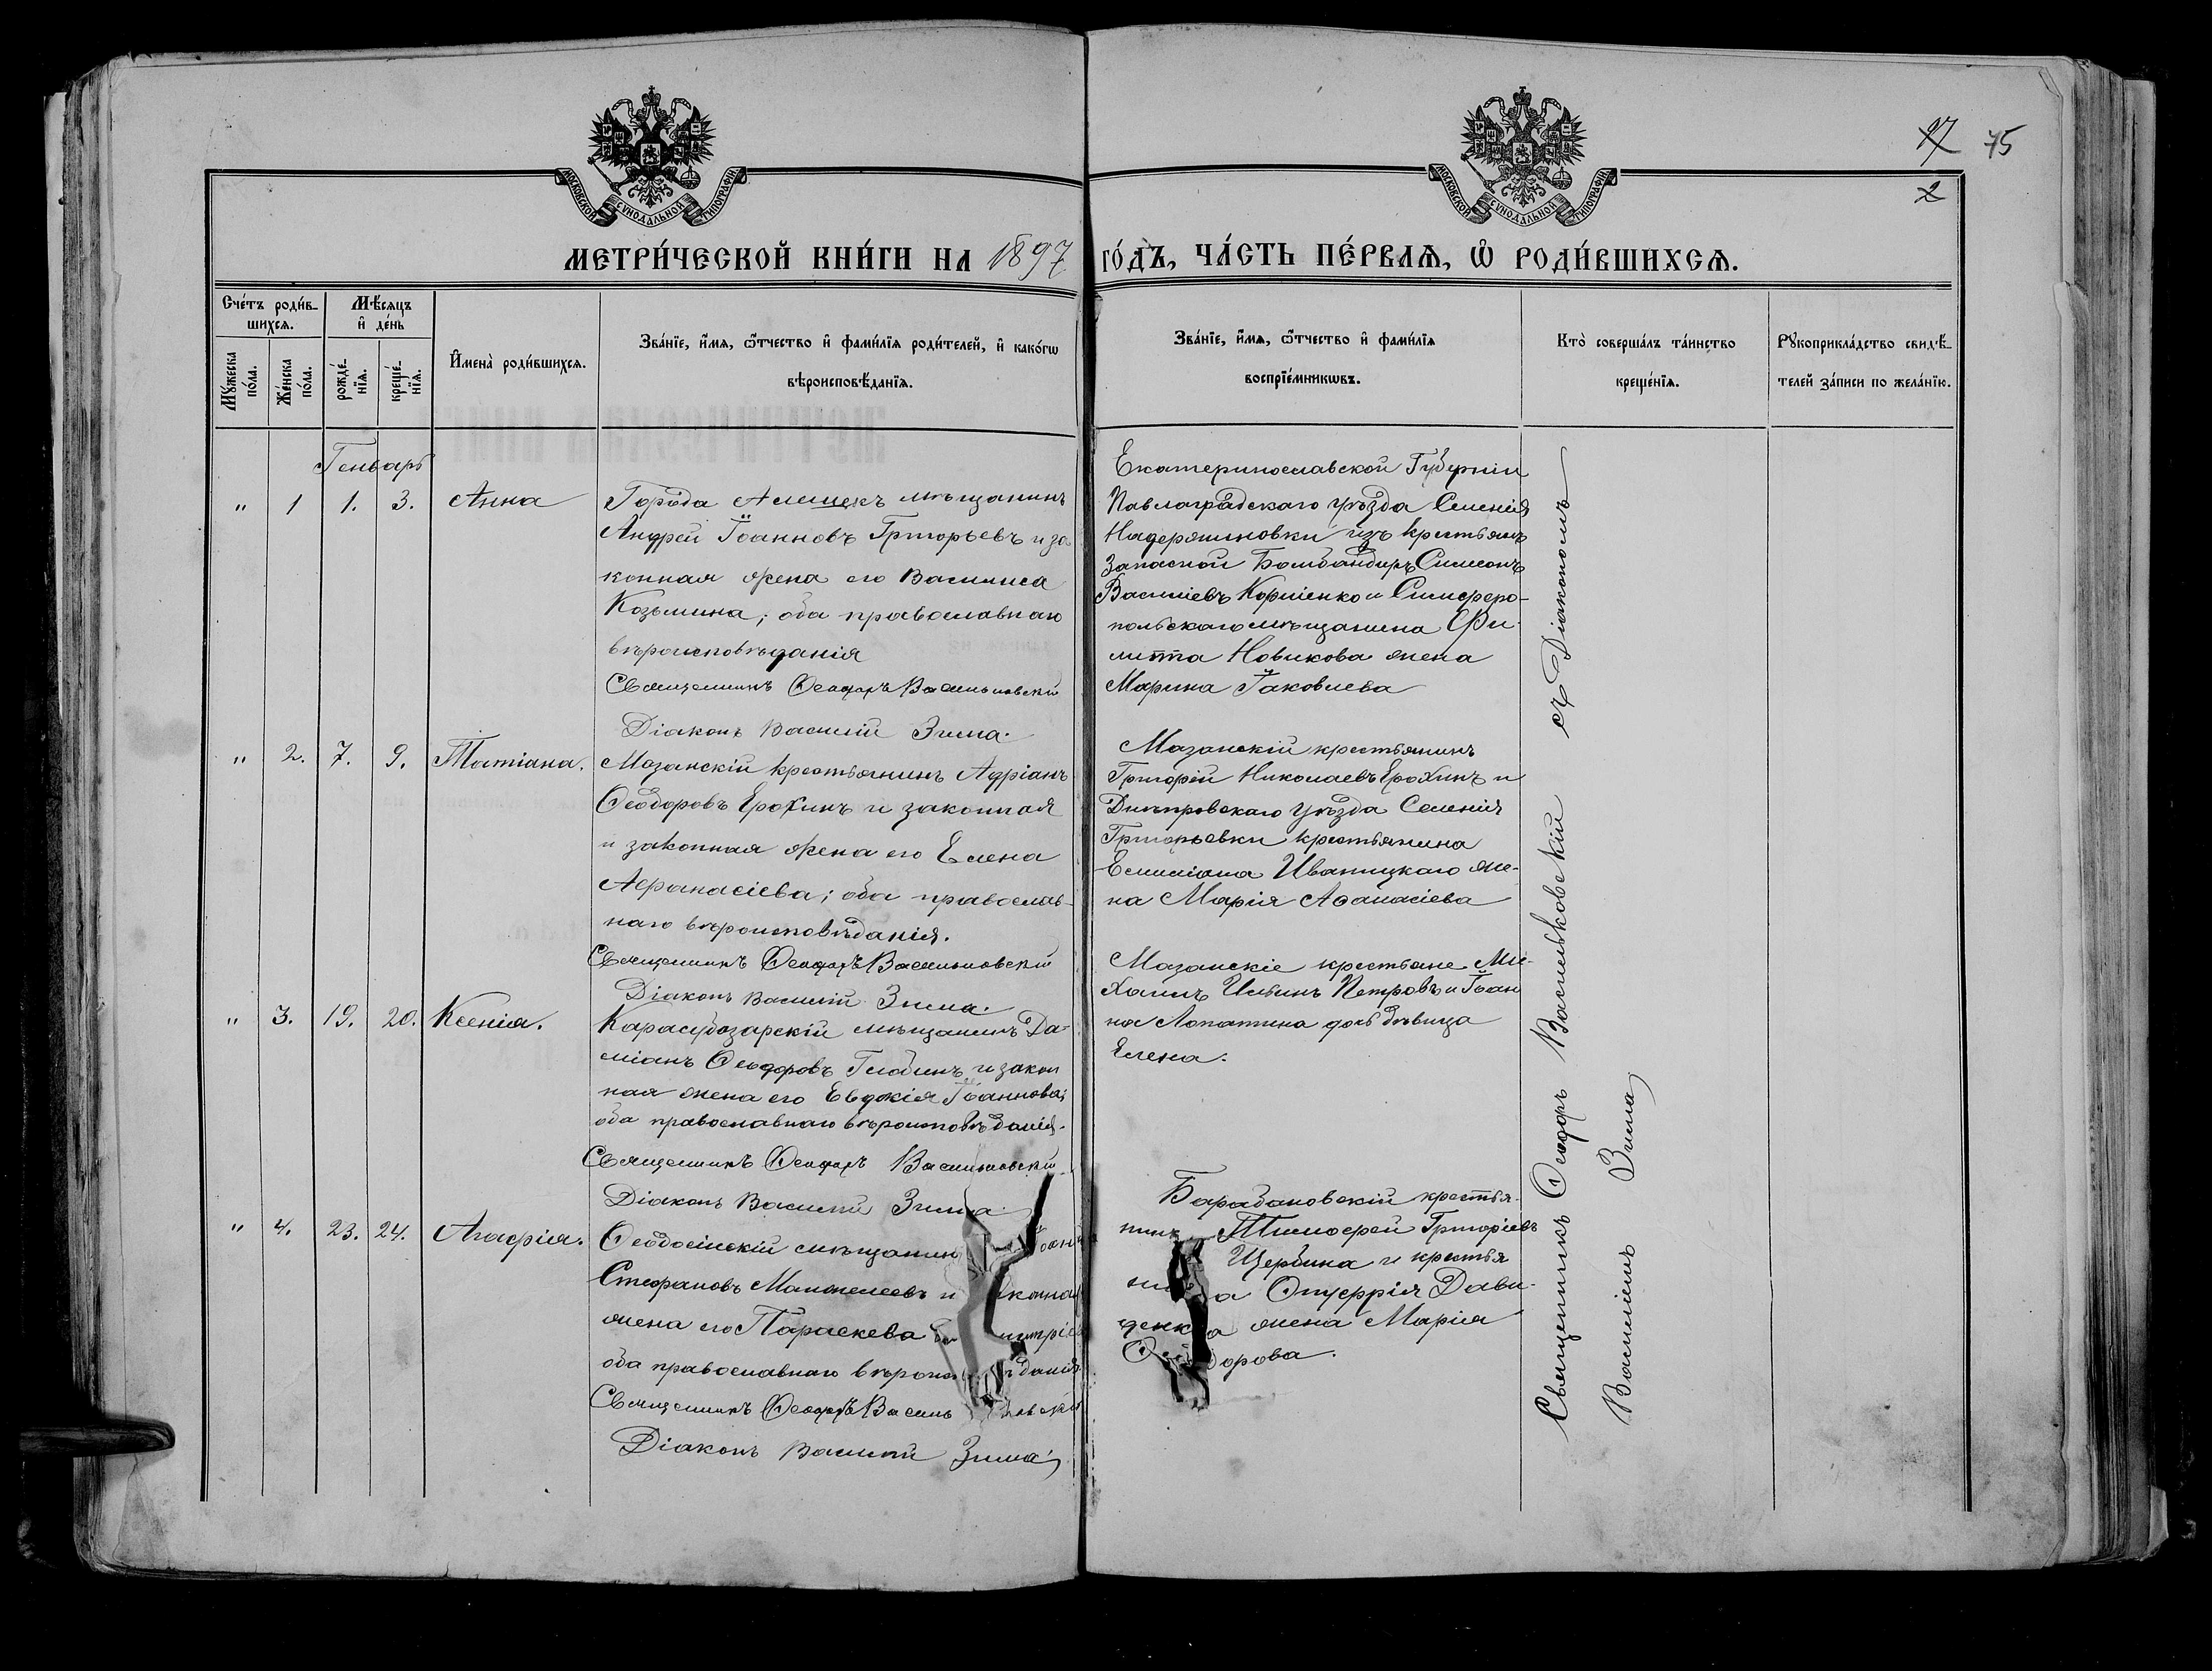 МОСКОВСКОЙ СѴНОДАЛЬНОЙ ТИПОГРАФІИ
МОСКОВСКОЙ СѴНОДАЛЬНОЙ ТИПОГРАФІИ
17 75
2
МЕТРИ́ЧЕСКОЙ КНИ́ГИ НА 1897 ГО́ДЪ, ЧА́СТЬ ПЕ́РВАѦ, Ѡ҆ РОДИ́ВШИХСѦ.
Сче́тъ роди́в-
шихсѧ.
Мѣ́сѧцъ
и҆ де́нь
Мꙋ́жеска
по́ла.
Же́нска
по́ла.
рожде́-
нїѧ.
креще́-
нїѧ.
И҆мена̀ роди́вшихсѧ.
Зва́нїе, и҆́мѧ, ѻ҆́тчество и҆ фами́лїѧ роди́телей, и҆ како́гѡ
вѣроисповѣ́данїѧ.
Зва́нїе, и҆́мѧ, ѻ҆́тчество и҆ фами́лїѧ
воспрїе́мникѡвъ.
Кто̀ соверша́лъ та́инство
креще́нїѧ.
Рꙋкоприкла́дство свидѣ́-
телей за́писи по жела́нїю.
Генварь
" 1 1. 3. Анна
Города Алешекъ мѣщанинъ
Андрей Іоанновъ Григорьевъ и за
конная жена его Василиса
Козьмина; оба православнаго
вѣроисповѣданія
Священникъ Ѳеодоръ Васильковскій
Діаконъ Василій Зима.
Екатеринославской Губерніи
Павлоградскаго уѣзда Селенія
изъ крестьянъ
Запасной Бомбандиръ Симеонъ
Василіевъ Корніенко и Симферо-
польскаго мѣщанина Фи-
липпа Новикова жена
Марина Іаковлева
" 2. 7. 9. Татіана.
Мазанскій крестьянинъ Адріанъ
Ѳеодоровъ Ерохинъ и законная
и законная жена его Елена
Афанасіева; оба православ-
наго вѣроисповѣданія.
Священникъ Ѳеодоръ Васильковскій
Діаконъ Василій Зима.
Мазанскій крестьянинъ
Григорій Николаевъ Ерохинъ и
Днѣпровскаго уѣзда Селенія
Григорьевки крестьянина
Емиліана Иваницкаго же-
на Марія Аѳанасіева
" 3. 19. 20. Ксенія.
Карасубазарскій мѣщанинъ Да-
міанъ Ѳеодоровъ Глобинъ и закон
ная жена его Евдокія Іоаннова;
оба православнаго вѣроисповѣданія.
Священникъ Ѳеодоръ Васильковскій
Діаконъ Василій Зима
Мазанскіе крестьяне Ми-
хаилъ Ильинъ Петровъ и Іоан
на Лопатина дочь дѣвица
Елена.
" 4. 23. 24. Агафія.
Ѳеодосійскій мѣщанин
Стефановъ и конная
жена его Параскева
оба православнаго вѣроиспо ѣданія
Священникъ Ѳеодоръ Василь ковскій
Діаконъ Василій Зима
Барабановскій крестья-
нинъ Тимофей Григоріевъ
Щербина и крестья
ни а Онуфрія Дави-
денк а жена Марія
Ѳ дорова.
Священникъ Ѳеодоръ Васильковскій съ Діакономъ
Василіемъ Зима